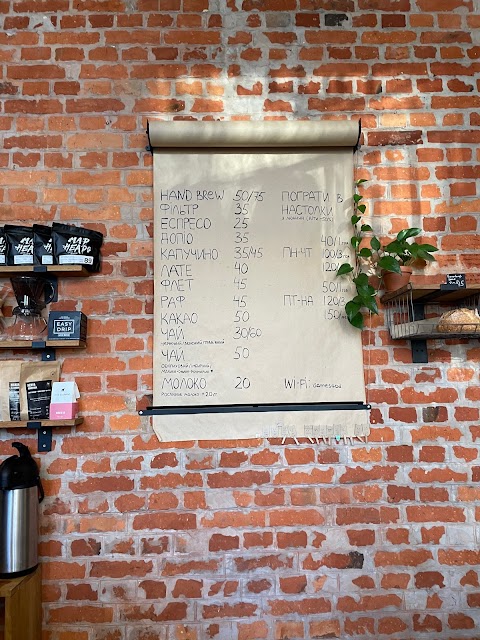 HAND BREW 50/75
ФІЛЬТР 35
ЕСПРЕСО 25
ДОПІО 35
КАПУЧИНО 35/45
ЛАТЕ 40
ФЛЕТ 45
РАФ 45
КАКАО 50
ЧАЙ 30/60
ЧАЙ 50
МОЛОКО 20
ПОГРАТИ В
НАСТОЛКИ
40/1
ПН-ЧТ 100/3
120/
50/1
ПТ-НД 120/3
150/
WI-FI:
MAD
HEADS
EASY
DRIP